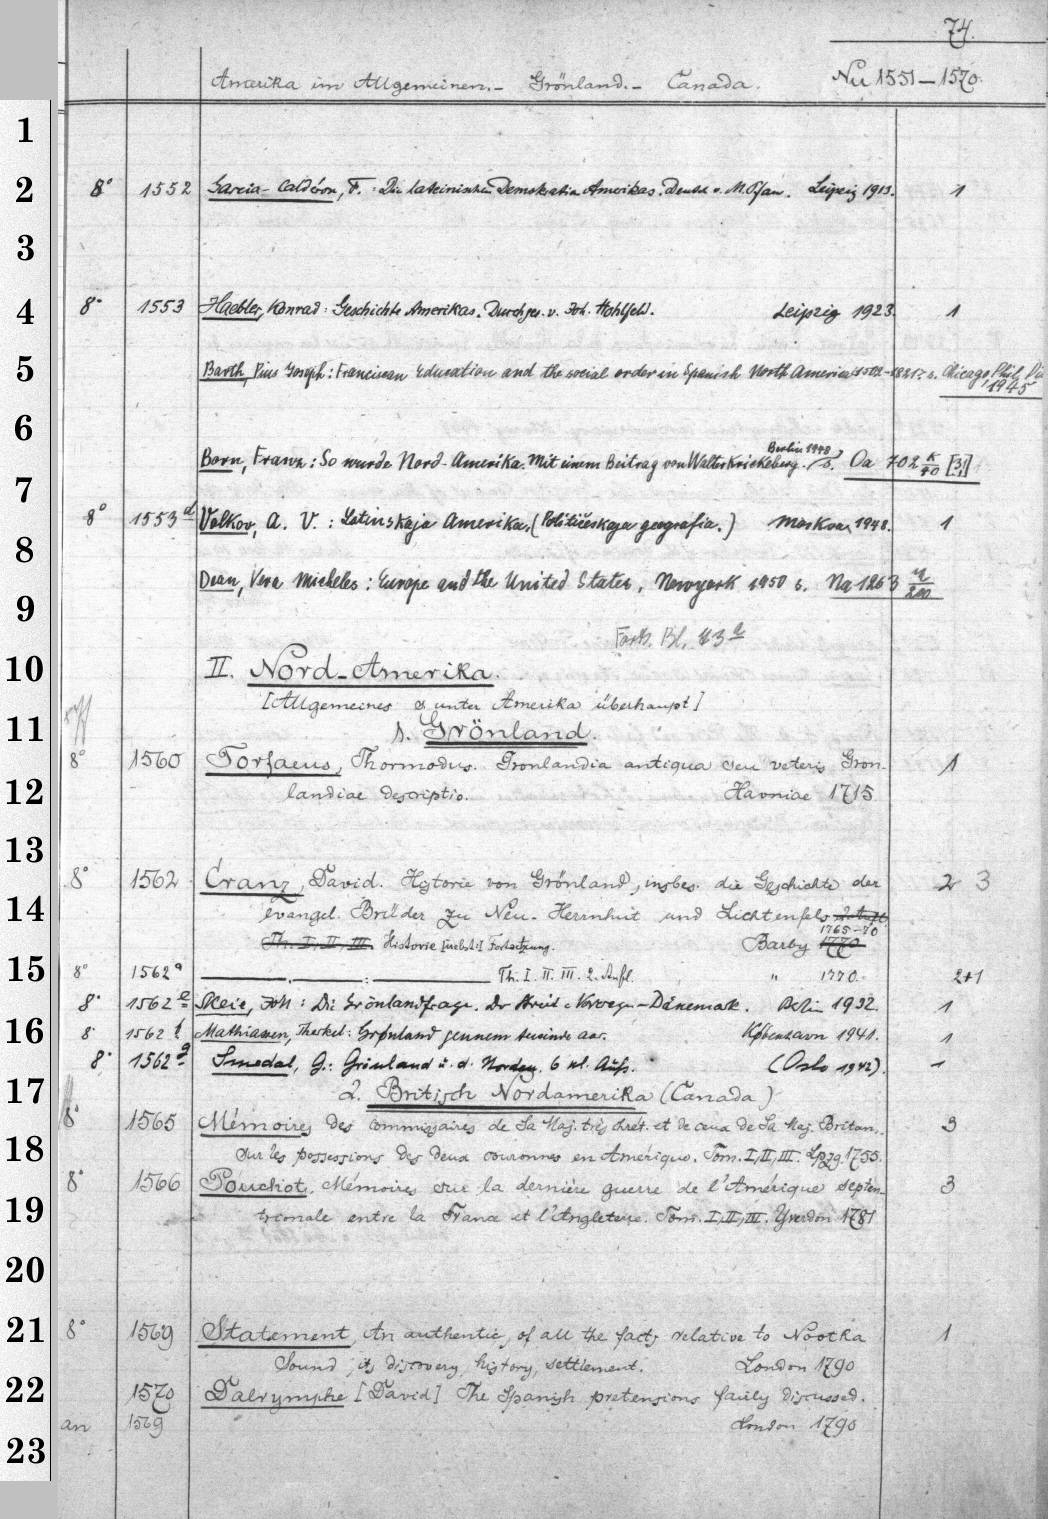 74.
Amerika im Allgemeinen.- Grönland.- Canada. Nu 1551-1570.
1
2
8° 1552 Garcia-Calderon, F.: Die lateinischen Demokratien Amerikas. Deutsch v. M. Pfau. Leipzig 1913. 1
3
4
8° 1553 Haebler, Konrad: Geschichte Amerikas. Durchges. v. Joh. Hohlfeld. Leipzig 1923. 1
5
Barth, Pius Joseph: Franciscan Education and the social order in Spanish North America 1502-1821. s. Chicago, Phil. Diss.
1945
6
Berlin 1948
Born, Franz: So wurde Nord-Amerika. Mit einem Beitrag von Walter Krickeberg. s. Oa 702 K/40 [3,1]
7
8° 1553 d Volkov, A. V.: Latinskaja Amerika. (Političeskaja geografia.) Moskva 1948. 1
8
Dean, Vera Micheles: Europe and the United States. New york 1950 s. Na 1263 n/200
9
Forts. Bl. 73 a
10
II. Nord-Amerika.
[Allgemeines s. unter Amerika überhaupt]
11
1. Grönland.
8° 1560 Torfaeus, Thormodus. Gronlandia antiqua seu veteris Gron- 1
12
landiae descriptio. Havniae 1715
13
8° 1562 Cranz, David. Historie von Grönland, insbes. die Geschichte der 2 3
14
evangel. Brüder zu Neu-Herrnhut und Lichtenfels 2. Aufl.
1765-70
Th. I, II, III. Historie [nebst] Fortsetzung. Barby 1770
15
8° 1562 a ———, ———: ——— Th. I. II. III. 2. Aufl. " 1770. 2+1
8° 1562 e Skeie, Joh: Die Grönlandfrage. Der Streit Norwegen-Dänemark. Berlin 1932. 1
16
8° 1562 f Mathiassen, Therkel: Grønland gennem tusinde aar. København 1941. 1
8° 1562 g Smedal, G.: Grönland u. d. Norden. 6 kl. Aufs. (Oslo 1942). 1
17
2. Britisch Nordamerika (Canada)
8° 1565 Mémoires des commissaires de Sa Maj. très chrét. et de ceux de Sa Maj. Britan. 3
18
sur les possessions des deux couronnes en Amérique. Tom. I, II, III. Lpzg. 1755.
8° 1566 Pouchot. Mémoires sur la dernière guerre de l'Amérique septen- 3
19
trionale entre la France et l'Angleterre. Tom. I, II, III. Yverdon 1781
20
21
8° 1569 Statement, An authentic, of all the facts relative to Nootka 1
Sound, its discovery, history, settlement. London 1790
22
1570 Dalrymphe [David] The Spanish pretensions fairly discussed.
an 1569 London 1790
23